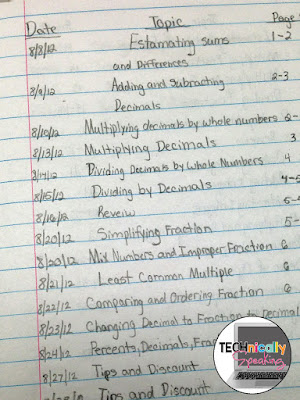 Date Topic Page
8/8/12 Estamating sums 1-2
and Differences
8/9/12 Adding and Subracting 2-3
Decimals
8/10/12 Multiplying decimals by whole numbers
8/13/12 Multiplying Decimals 3
8/14/12 Dividing Decimals by Whole Numbers 4
8/15/12 Dividing by Decimals 4-
8/16/12 Reveiw
8/20/12 Simplifying Fraction 5-
8/20/12 Mix Numbers and Improper Fraction 6
8/21/12 Least Common Multiple 6
8/22/12 Comparing and Ordering Fraction 6
8/23/12 Changing Decimal to Fraction to Decimal
8/24/12 Percents, Decimals, Fra
8/27/12 Tips and Discount
Tips and Discount
TECHnically
Speaking